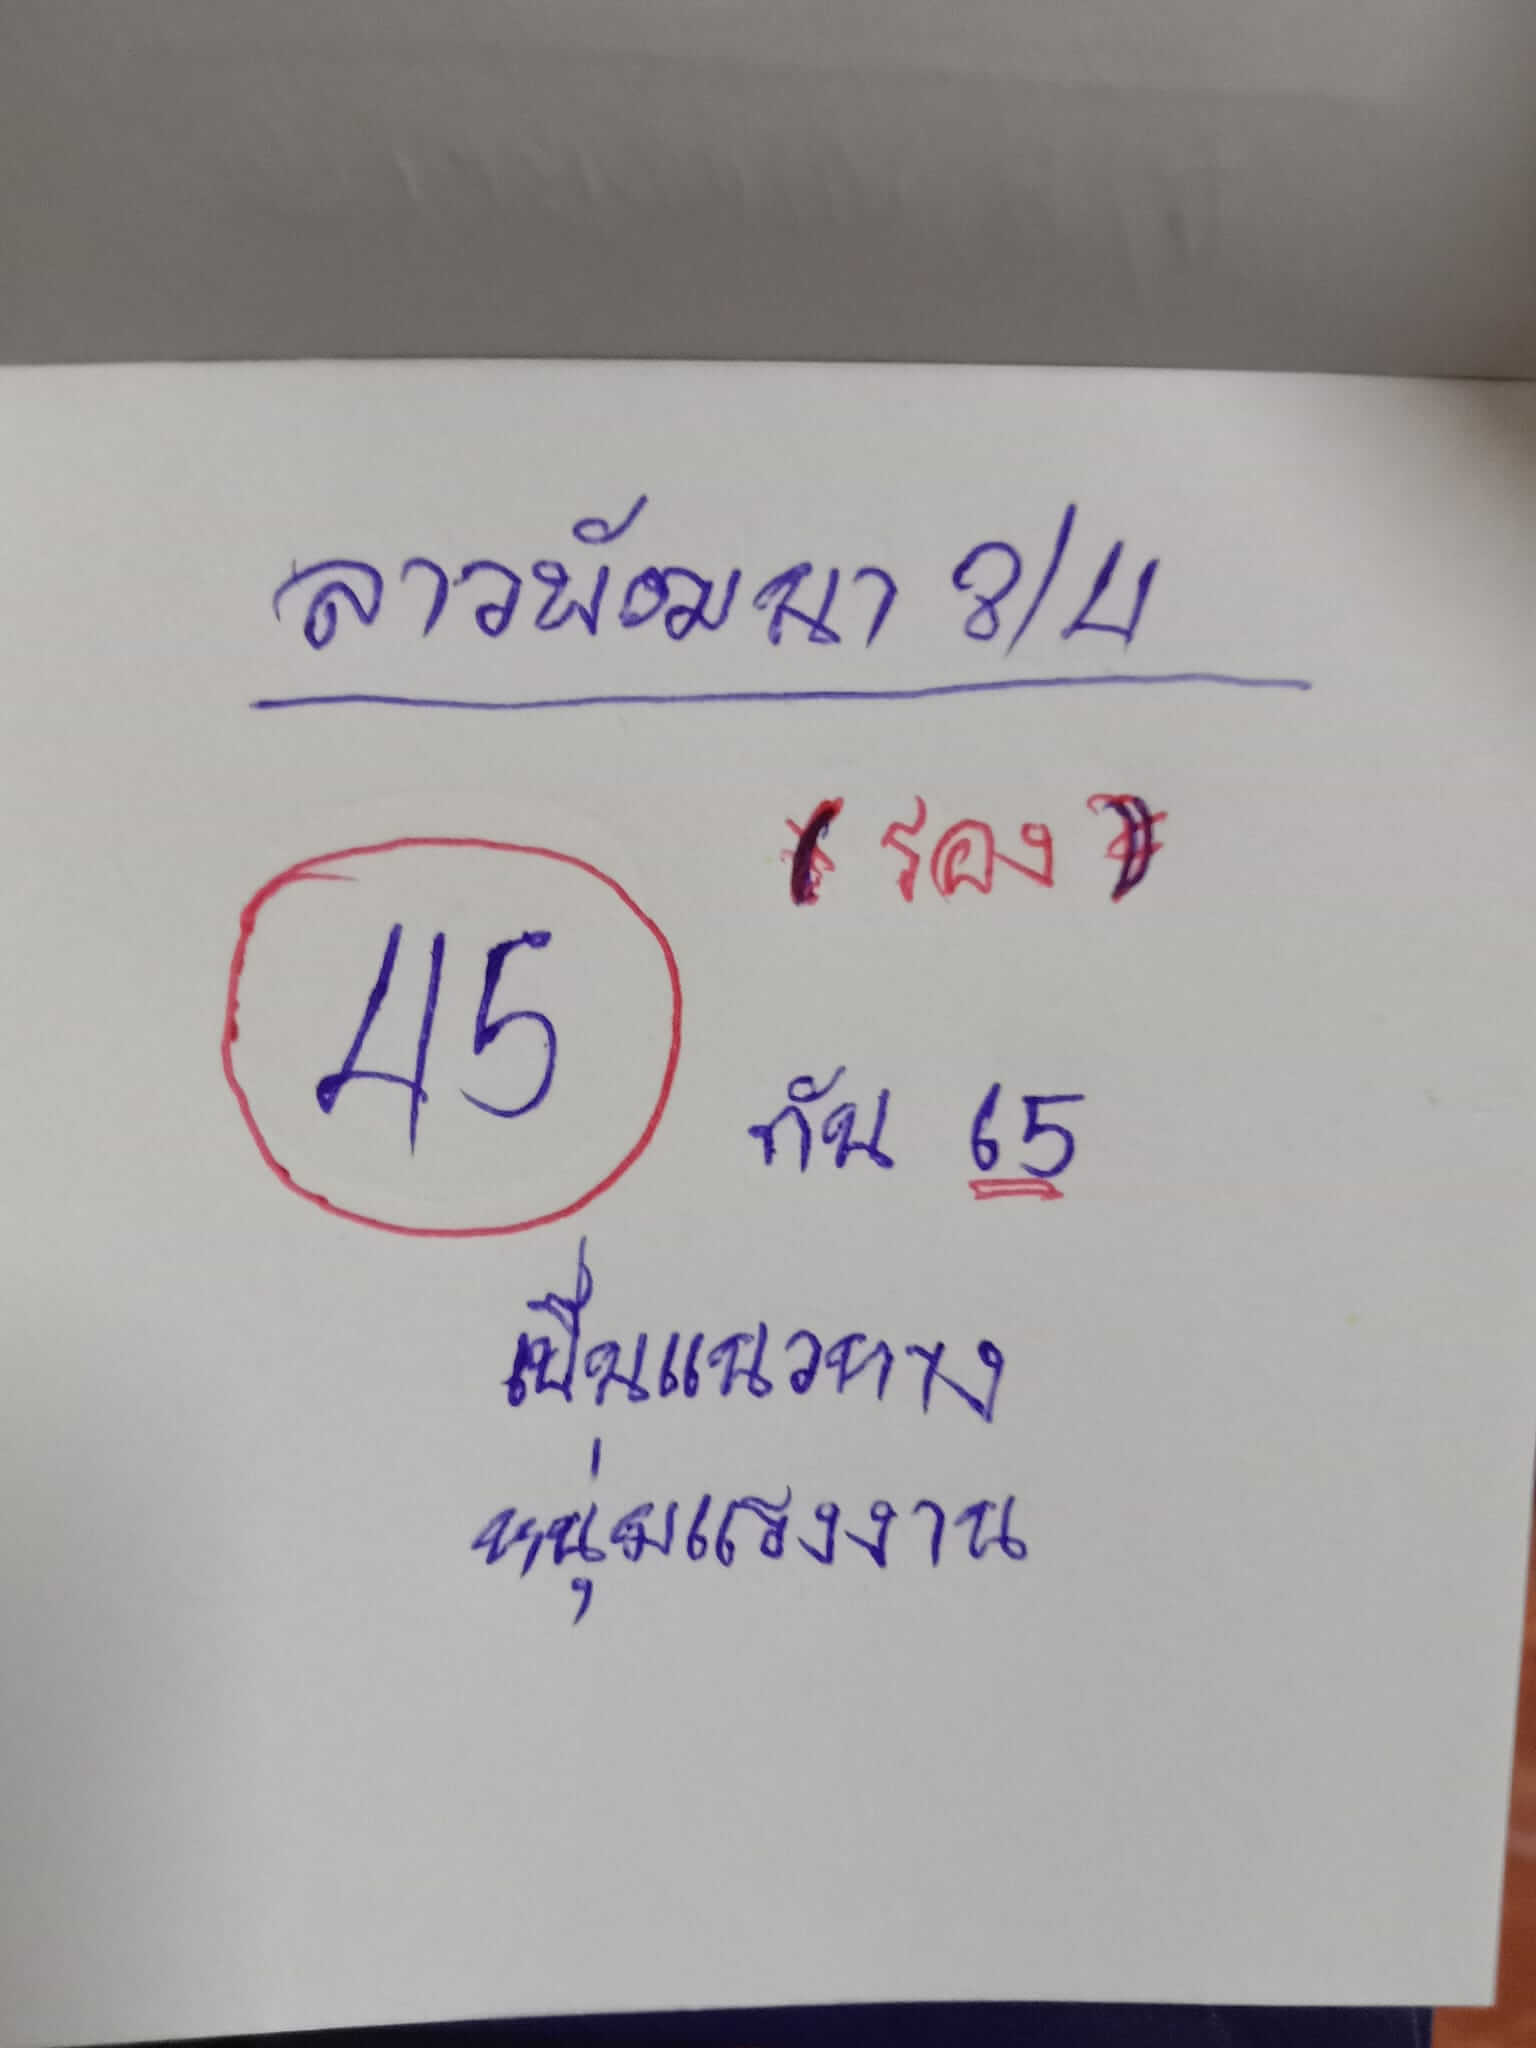 ลาวพัฒนา 8/4
(รอง)
45
กัน 65
เป็นแนวทาง
หนุ่มแรงงาน